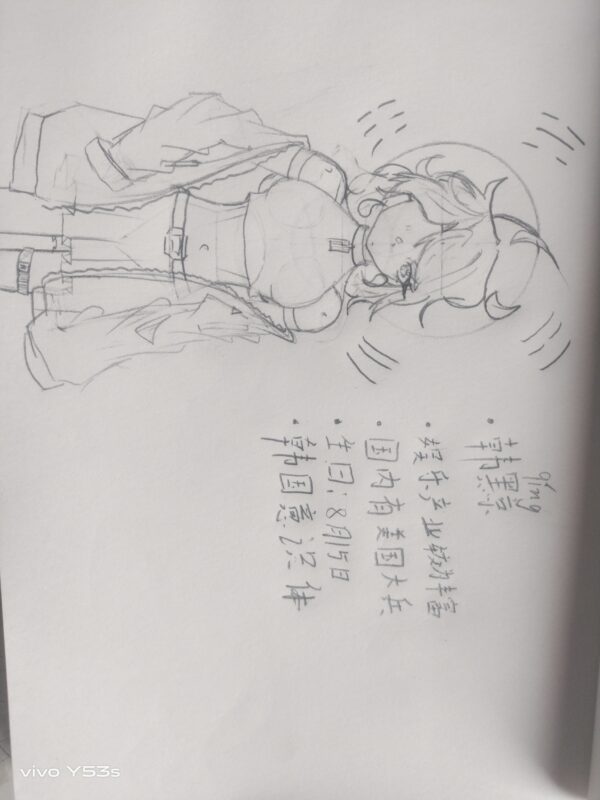 qing
• 韩黥
• 娱乐产业较为丰富
• 国内有美国大兵
• 生日:8月15日
• 韩国意识体
vivo Y53s